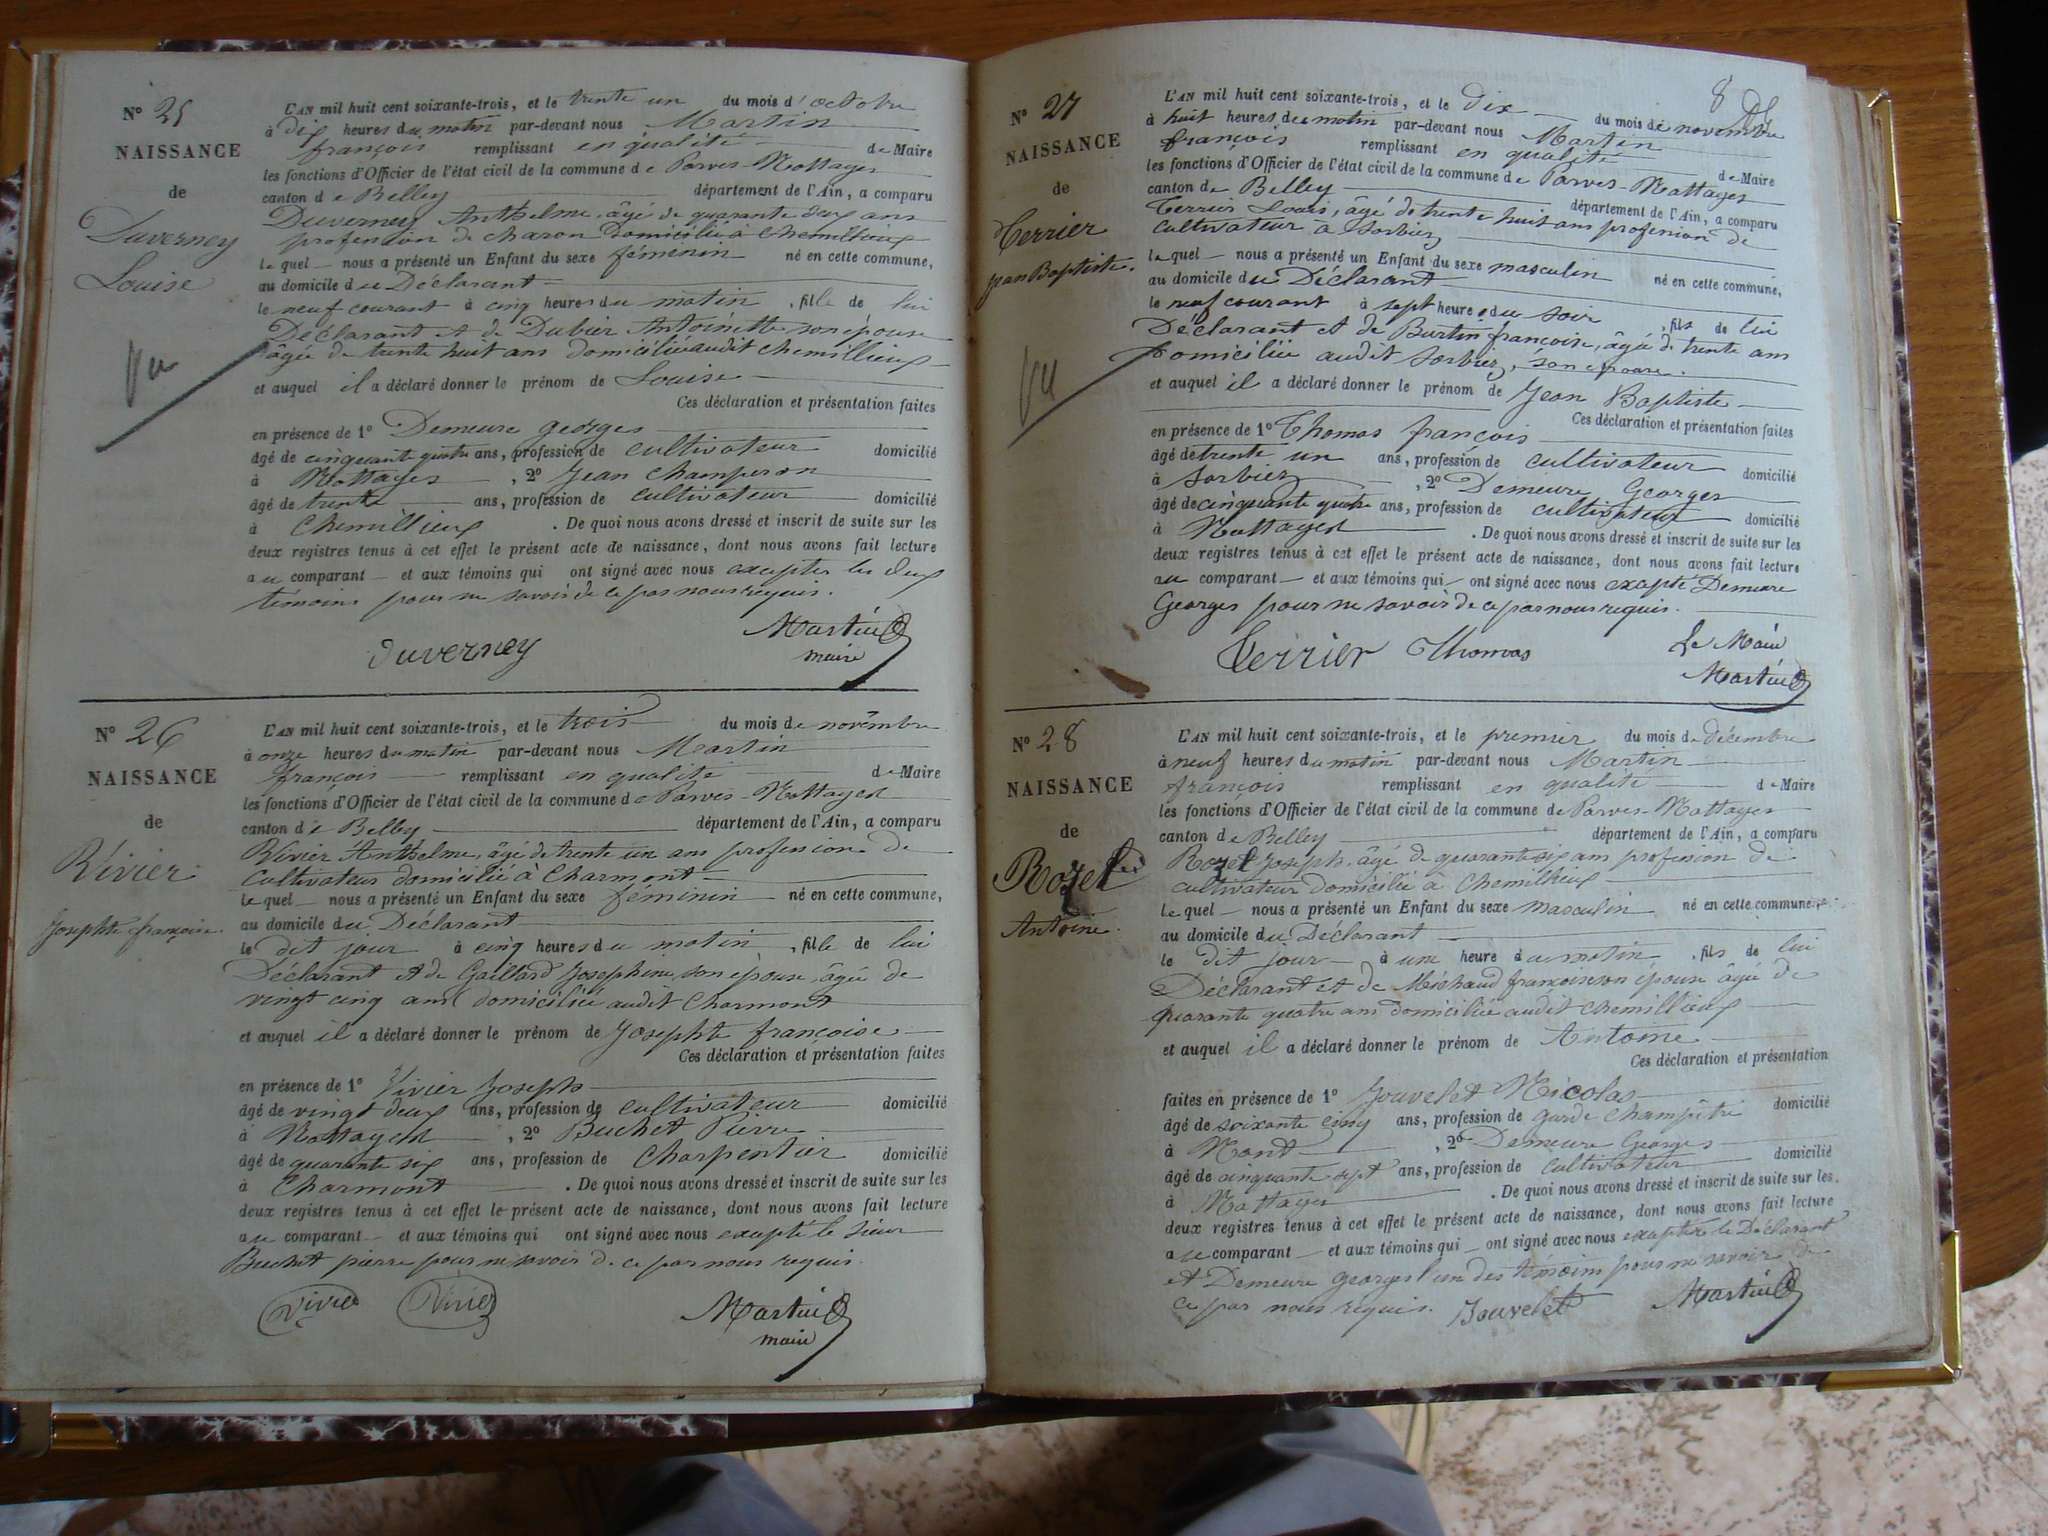 N° 25
NAISSANCE
de
Duverney
Louise
Vu
L'AN mil huit cent soixante-trois, et le trente un du mois d'octobre
à dix heures du matin par-devant nous Martin
françois remplissant en qualité de Maire
les fonctions d'Officier de l'état civil de la commune de Parves-Nattages
canton de Belley département de l'Ain, a comparu
Duverney Anthelme, âgé de quarante deux ans
profession de charon domicilié à Chemillieux
lequel nous a présenté un Enfant du sexe féminin né en cette commune,
au domicile du Déclarant
le neuf courant à cinq heures du matin, fille de lui
Déclarant et de Dubier Antoinette son épouse
âgée de trente huit ans domiciliée audit Chemillieux
et auquel il a déclaré donner le prénom de Louise
Ces déclaration et présentation faites
en présence de 1° Demeure georges
âgé de cinquante quatre ans, profession de cultivateur domicilié
à Nattages, 2° Jean Champeron
âgé de trente ans, profession de cultivateur domicilié
à Chemillieux. De quoi nous avons dressé et inscrit de suite sur les
deux registres tenus à cet effet le présent acte de naissance, dont nous avons fait lecture
au comparant et aux témoins qui ont signé avec nous exceptés les deux
témoins pour ne savoir de ce par nous requis.
Duverney Martin
maire
N° 26
NAISSANCE
de
Vivier
Josephte françoise
L'AN mil huit cent soixante-trois, et le trois du mois de novembre
à onze heures du matin par-devant nous Martin
françois remplissant en qualité de Maire
les fonctions d'Officier de l'état civil de la commune de Parves-Nattages
canton de Belley département de l'Ain, a comparu
Vivier Anthelme, âgé de trente un ans profession de
Cultivateur domicilié à Charmont
lequel nous a présenté un Enfant du sexe féminin né en cette commune,
au domicile du Déclarant
le dit jour à cinq heures du matin, fille de lui
Déclarant et de Gaillard Josephine son épouse, âgée de
vingt cinq ans domiciliée audit Charmont
et auquel il a déclaré donner le prénom de Josephte françoise
Ces déclaration et présentation faites
en présence de 1° Vivier Joseph
âgé de vingt deux ans, profession de cultivateur domicilié
à Nattages, 2° Buchet Pierre
âgé de quarante six ans, profession de Charpentier domicilié
à Charmont. De quoi nous avons dressé et inscrit de suite sur les
deux registres tenus à cet effet le présent acte de naissance, dont nous avons fait lecture
au comparant et aux témoins qui ont signé avec nous excepté le sieur
Buchet pierre pour ne savoir de ce par nous requis.
Vivier Vivier Martin
maire
8
N° 27
NAISSANCE
de
Terrier
jean Baptiste.
Vu
L'AN mil huit cent soixante-trois, et le dix du mois de novembre
à huit heures du matin par-devant nous Martin
françois remplissant en qualité de Maire
les fonctions d'Officier de l'état civil de la commune de Parves-Nattages
canton de Belley département de l'Ain, a comparu
Terrier Louis, âgé de trente huit ans profession de
cultivateur à Sorbier
lequel nous a présenté un Enfant du sexe masculin né en cette commune,
au domicile du Déclarant
le neuf courant à sept heures du soir, fils de lui
Déclarant et de Burtin françoise, âgée de trente ans
Domiciliée audit Sorbier, son épouse.
et auquel il a déclaré donner le prénom de Jean Baptiste
Ces déclaration et présentation faites
en présence de 1° Thomas françois
âgé de trente un ans, profession de cultivateur domicilié
à Sorbier, 2° Demeure Georges
âgé de cinquante quatre ans, profession de cultivateur domicilié
à Nattages. De quoi nous avons dressé et inscrit de suite sur les
deux registres tenus à cet effet le présent acte de naissance, dont nous avons fait lecture
au comparant et aux témoins qui ont signé avec nous excepté Demeure
Georges pour ne savoir de ce par nous requis.
Terrier Thomas Le Maire
Martin
N° 28
NAISSANCE
de
Rozet
Antoine.
L'AN mil huit cent soixante-trois, et le premier du mois de décembre
à neuf heures du matin par-devant nous Martin
françois remplissant en qualité de Maire
les fonctions d'Officier de l'état civil de la commune de Parves-Nattages
canton de Belley département de l'Ain, a comparu
Rozet Joseph, âgé de quarante six ans profession de
cultivateur domicilié à Chemillieux
lequel nous a présenté un Enfant du sexe masculin né en cette commune,
au domicile du Déclarant
le dit jour à une heure du matin, fils de lui
Déclarant et de Michaud françoise son épouse âgée de
quarante quatre ans domiciliée audit Chemillieux
et auquel il a déclaré donner le prénom de Antoine
Ces déclaration et présentation
faites en présence de 1° Jouvelet Nicolas
âgé de soixante cinq ans, profession de garde champêtre domicilié
à Nant, 2° Demeure Georges
âgé de cinquante sept ans, profession de cultivateur domicilié
à Nattages. De quoi nous avons dressé et inscrit de suite sur les
deux registres tenus à cet effet le présent acte de naissance, dont nous avons fait lecture
au comparant et aux témoins qui ont signé avec nous exceptés le Déclarant
et Demeure georges l'un des témoins pour ne savoir de
ce par nous requis. Jouvelet Martin